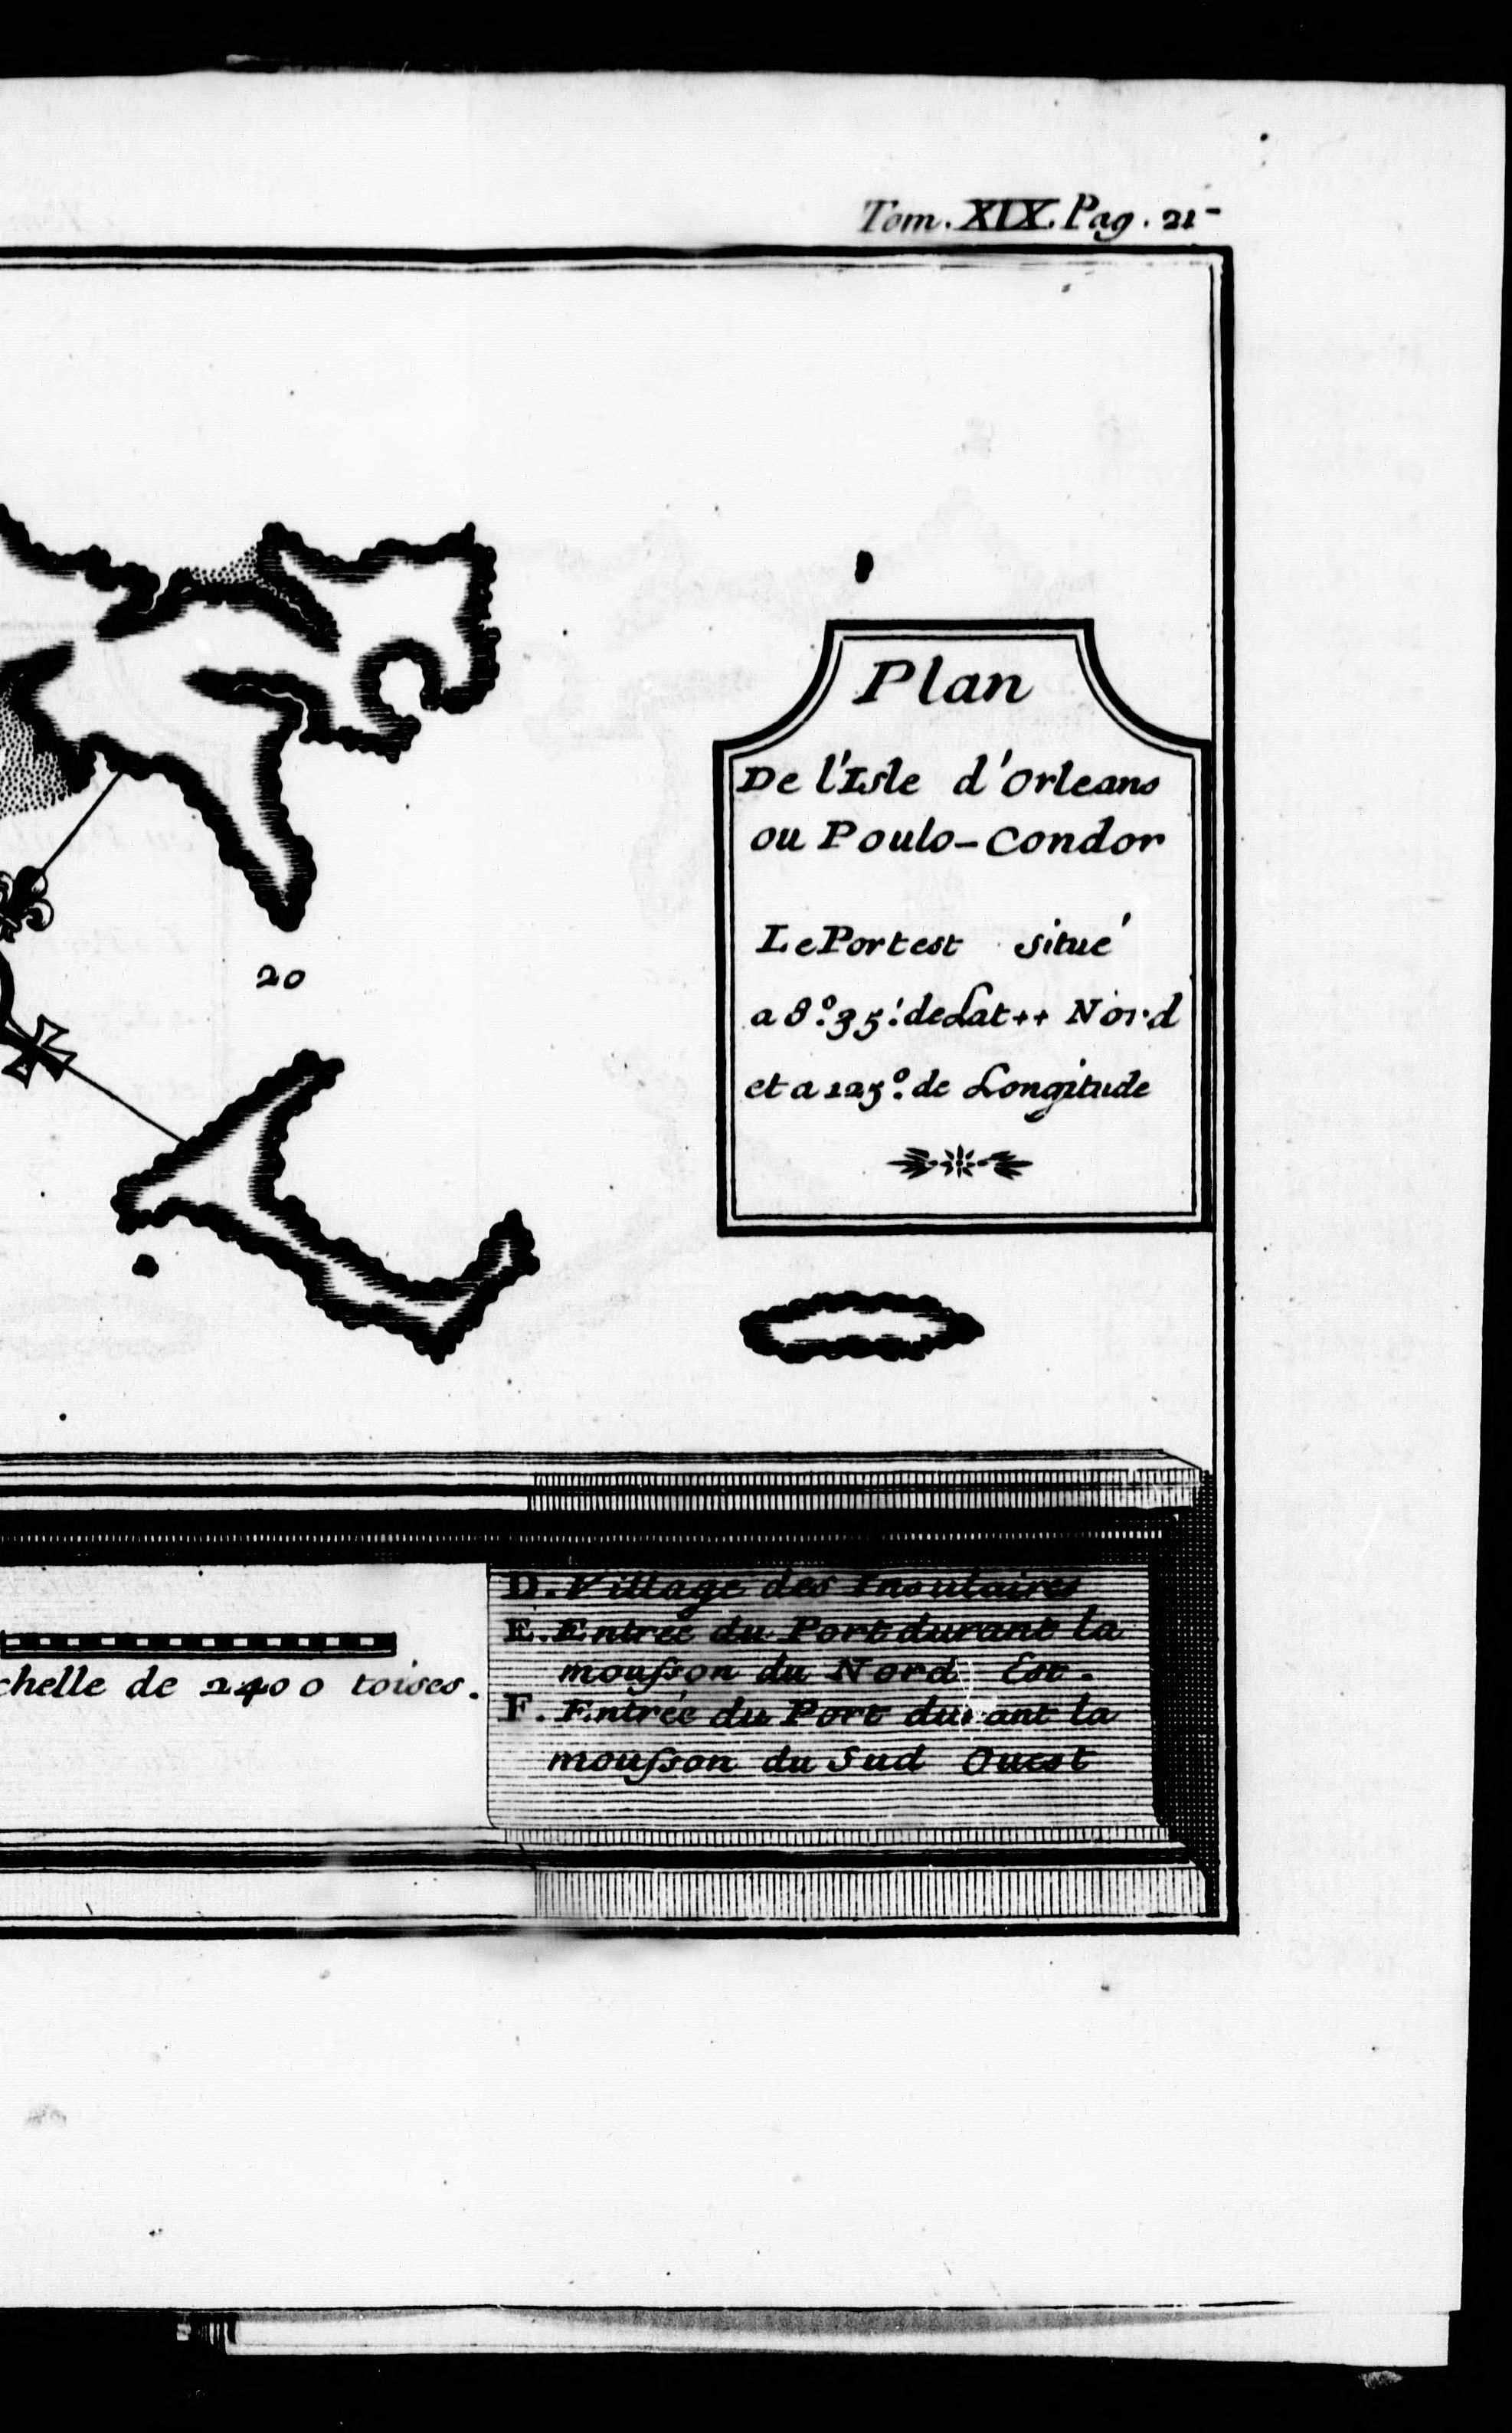 Tom. XIX. Pag. 21
Plan
De l'Isle d'Orleans
ou Poulo-Condor
Le Port est situé
a 8°. 35'. de Lat++ Nord
et a 125°. de Longitude
20
chelle de 2400 toises.
D. Village des Insulaires
E. Entrée du Port durant la
mousson du Nord Est.
F. Entrée du Port durant la
mousson du Sud Ouest